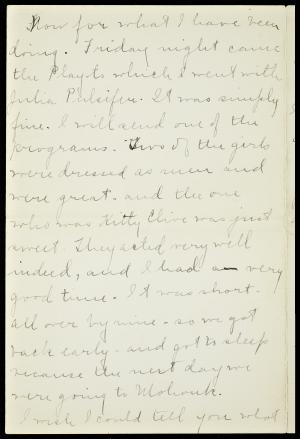 Now for what I have been
doing. Friday night came
the Plays to which I went with
Julia Pulsifer. It was simply
fine. I will send one of the
programs. Two of the girls
were dressed as men and
were great - and the one
who was Kitty Clive was just
sweet. They acted very well
indeed, and I had a very
good time. It was short -
all over by nine - so we got
back early - and got to sleep
because the next day we
were going to Mohonk.
I wish I could tell you what